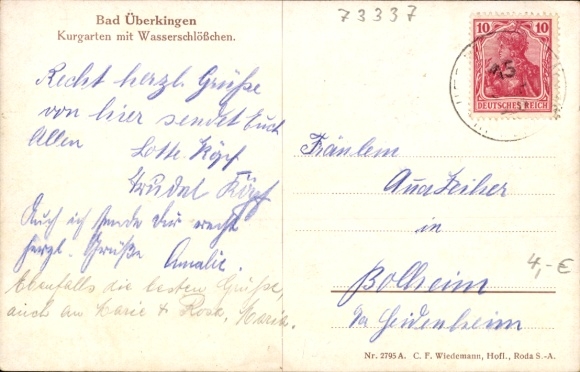 Bad Überkingen
Kurgarten mit Wasserschlößchen.
73337
10 10
DEUTSCHES REICH
Recht herzl. Grüße
von hier sendet Euch
Allen
Lotte Köpf
Trudel Köpf
Auch ich sende Dir recht
herzl. Grüße Amalie.
Ebenfalls die besten Grüße,
auch an Marie & Rosa, Maria.
Fräulein
Anna
in
Bolheim
Heidenheim
4,- €
Nr. 2795 A. C. F. Wiedemann, Hofl., Roda S.-A.